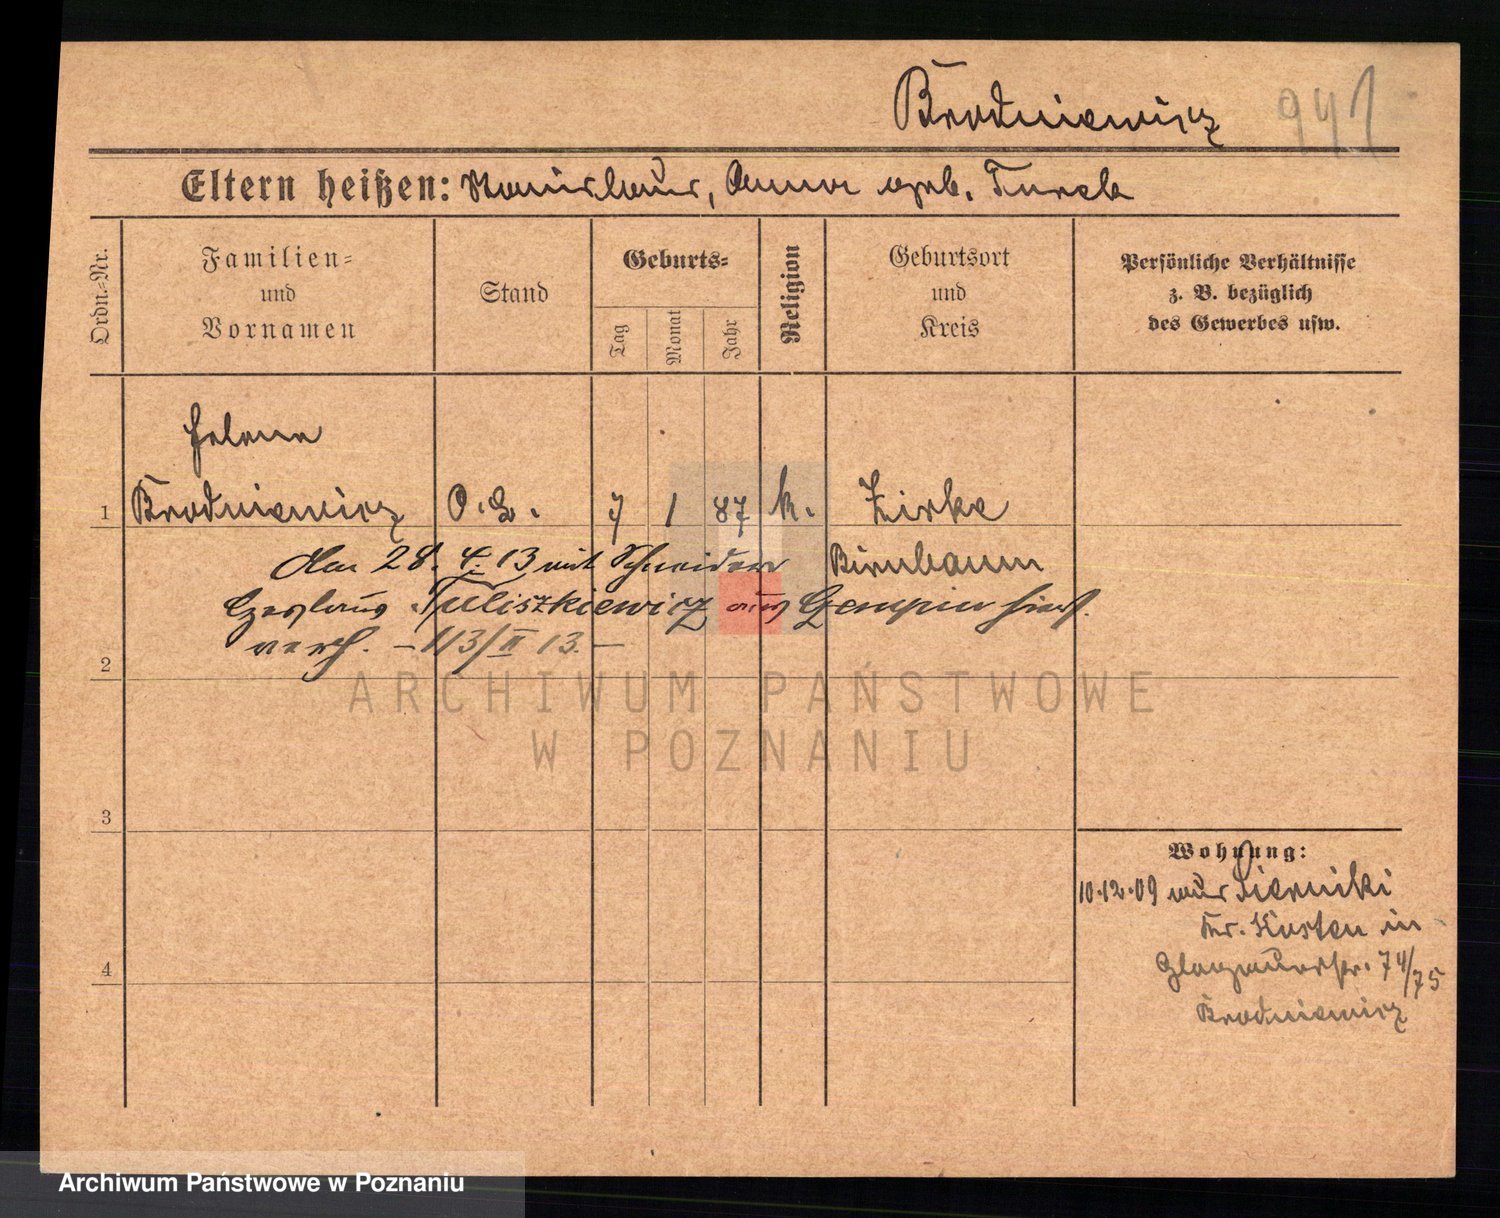 Brodniewicz 941
Eltern heißen: Stanislaus, Anna geb. Turek
Ordn.-Nr.
Familien-
und
Vornamen
Stand
Geburts-
Tag
Monat
Jahr
Religion
Geburtsort
und
Kreis
Persönliche Verhältnisse
z. B. bezüglich
des Gewerbes usw.
Helene
1 Brodniewicz 7 1 87 k. Zirke
den 28. 4. 13 mit Schneider Birnbaum
Czeslaus Tuliszkiewicz aus Gempin hier
2 verh. – 113/II 13. –
ARCHIWUM PAŃSTWOWE
W POZNANIU
3
Wohnung:
10.12.09 aus Sierniki
Kr. Kosten in
4 74/75
Brodniewicz
Archiwum Państwowe w Poznaniu